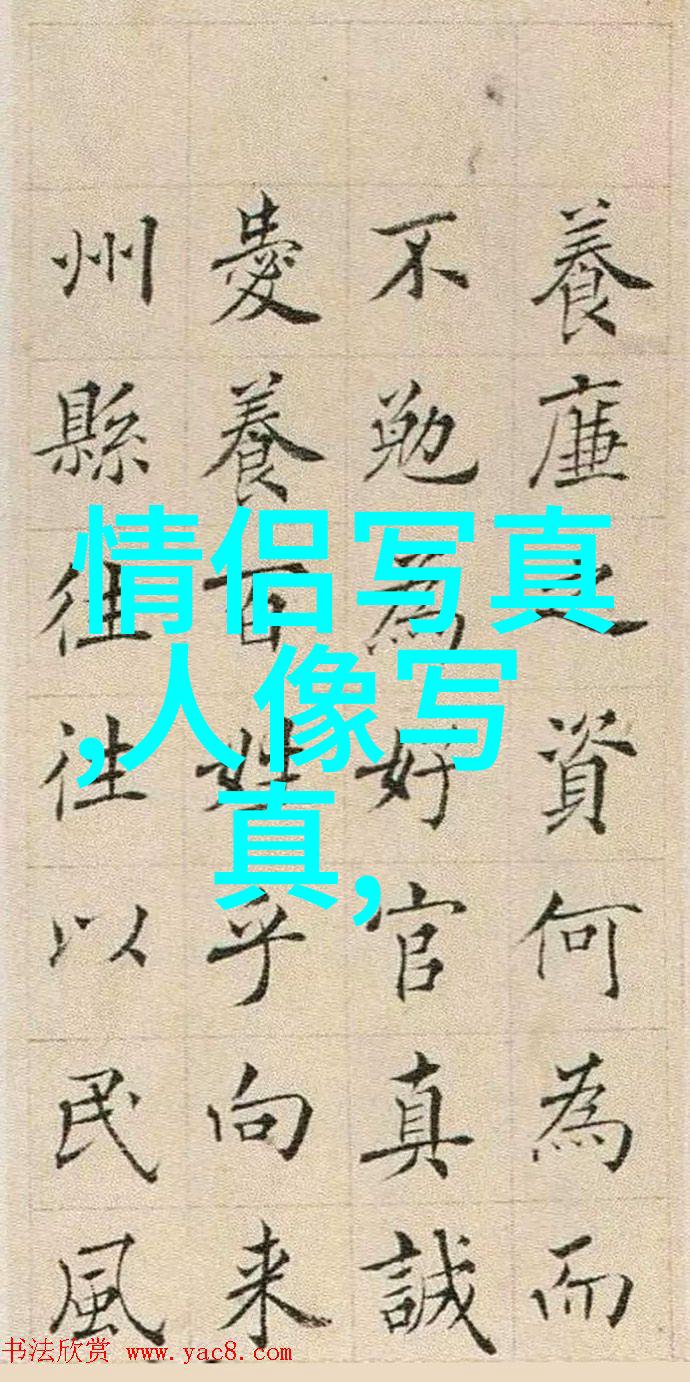 養廉之資何為而
不勉為好官真誠
愛養百姓乎向来
州縣往往以民風
情侣写真
,人像写
真,
书法欣赏 www.yac8.com